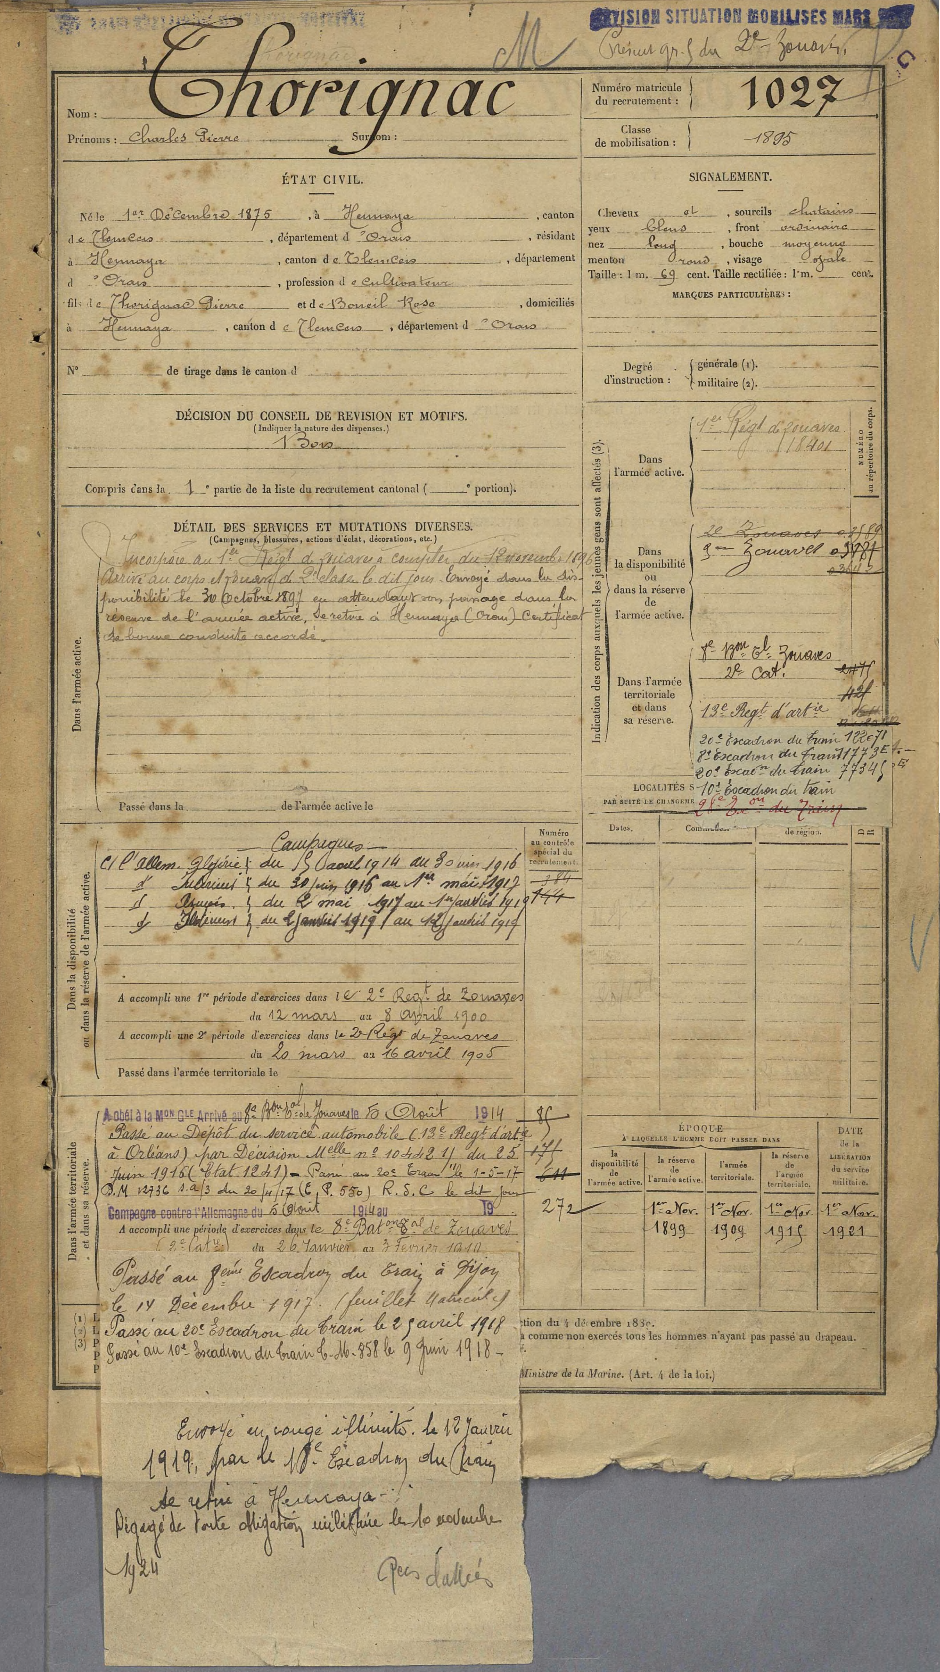 RÉVISION SITUATION MOBILISÉS MARS
du 2e Zouaves
Nom : Thorignac
Prénoms : Charles Pierre Surnom :
Numéro matricule du recrutement : 1027
Classe de mobilisation : 1895
ÉTAT CIVIL.
Né le 1er Décembre 1875, à Hennaya, canton
de Tlemcen, département d'Oran, résidant
à Hennaya, canton de Tlemcen, département
d'Oran, profession de cultivateur
fils de Thorignac Pierre et de Boneil Rose, domiciliés
à Hennaya, canton de Tlemcen, département d'Oran
N° de tirage dans le canton d
SIGNALEMENT.
Cheveux et, sourcils chatains
yeux bleus, front ordinaire
nez long, bouche moyenne
menton rond, visage ovale
Taille : 1 m. 69 cent. Taille rectifiée : 1 m. cent.
MARQUES PARTICULIÈRES :
Degré d'instruction : générale (1).
militaire (2).
DÉCISION DU CONSEIL DE REVISION ET MOTIFS.
(Indiquer la nature des dispenses.)
Bon
Compris dans la 1e partie de la liste du recrutement cantonal ( e portion).
DÉTAIL DES SERVICES ET MUTATIONS DIVERSES.
(Campagnes, blessures, actions d'éclat, décorations, etc.)
Dans l'armée active.
Incorporé au 1er Régt de zouaves à compter du 12 novembre 1896
Arrivé au corps et zouave de 2e classe le dit jour. Envoyé dans la dis-
ponibilité le 30 Octobre 1897 en attendant son passage dans la
réserve de l'armée active, se retire à Hennaya (Oran) Certificat
de bonne conduite accordé.
Passé dans la de l'armée active le
Indication des corps auxquels les jeunes gens sont affectés (3).
NUMÉRO au répertoire du corps.
Dans l'armée active.
1er Régt de zouaves
Dans la disponibilité ou dans la réserve de l'armée active.
2e Zouaves
Zouaves
Dans l'armée territoriale et dans sa réserve.
8e Bon Tal Zouaves
2e Cat.
13e Regt d'artie
20e Escadron du train
8e Escadron du train
20e Escadn du train
10e Escadron du train
du Train
LOCALITÉS S
PAR SUITE DE CHANGEME
Dates.
de région.
Dans la disponibilité ou dans la réserve de l'armée active.
Campagnes
Numéro au contrôle spécial du recrutement.
C/ l'allem. Algérie du 5 aout 1914 au 30 juin 1916
d° Intérieur du 30 juin 1916 au 1er mai 1917
du 2 mai 1917 au 1er janvier 1919
d° Intérieur du 2 janvier 1919 au 12 janvier 1919
A accompli une 1re période d'exercices dans le 2e Regt de Zouaves
du 12 mars au 8 April 1900
A accompli une 2e période d'exercices dans le 2e Régt de Zouaves
du 20 mars au 16 avril 1905
Passé dans l'armée territoriale le
Dans l'armée territoriale et dans sa réserve.
A obéi à la Mon Gle Arrivé au 8e Bon Tal de Zouaves le 5 Août 1914
Passé au Dépôt du service automobile (13e Regt d'artie
à Orléans) par Décision Melle n° 10442 1/ du 25
Juin 1916 (Etat 1241) – Passé au 20e Train le 1-5-17
D.M 12736 du 20/4/17 (C. P. 550) R.S.C le dit jour
Campagne contre l'Allemagne du 5 Août 1914 au 19
272
A accompli une période d'exercices dans le 8e Baton Tal de Zouaves
(2e Catie) du 26 Janvier au 3 février 1910
Passé au 8ème Escadron du Train à Dijon
le 14 Décembre 1917. (feuillet matricule)
Passé au 20e Escadron du train le 25 avril 1918
Passé au 10e Escadron du train C.M. 858 le 9 Juin 1918 –
ÉPOQUE
À LAQUELLE L'HOMME DOIT PASSER DANS
la disponibilité de l'armée active.
la réserve de l'armée active.
l'armée territoriale.
la réserve de l'armée territoriale.
DATE de la LIBÉRATION du service militaire.
1er Nov. 1899
1er Nov. 1909
1er Nov. 1915
1er Nov. 1921
ction du 4 décembre 1889.
comme non exercés tous les hommes n'ayant pas passé au drapeau.
Ministre de la Marine. (Art. 4 de la loi.)
Envoyé en congé illimité le 12 Janvier
1919, par le Escadron du Train
se retire à Hennaya
Dégagé de toute obligation militaire le 10 novembre
1924